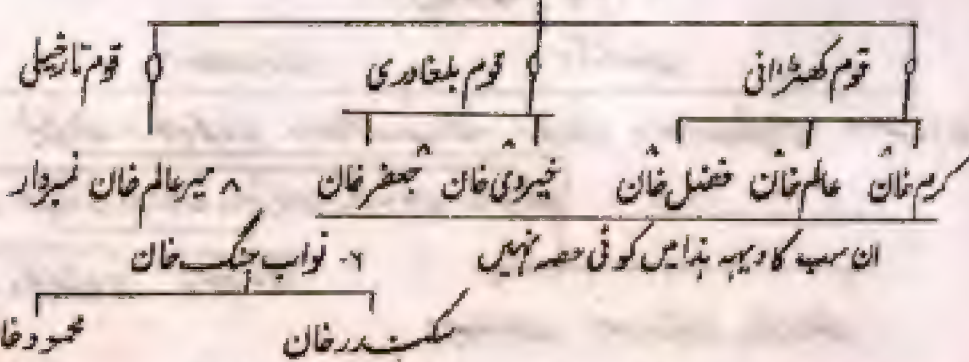 قوم کھڈرانی قوم بلغادری قوم تازخیلی
کرم خان عالم خان فضل خان خیروی خان جعفر خان میر عالم خان نمبردار
ان سب کا دیہہ ہذا میں کوئی حصہ نہیں ۶۔ نواب جنگ خان
سکندر خان محمود خا